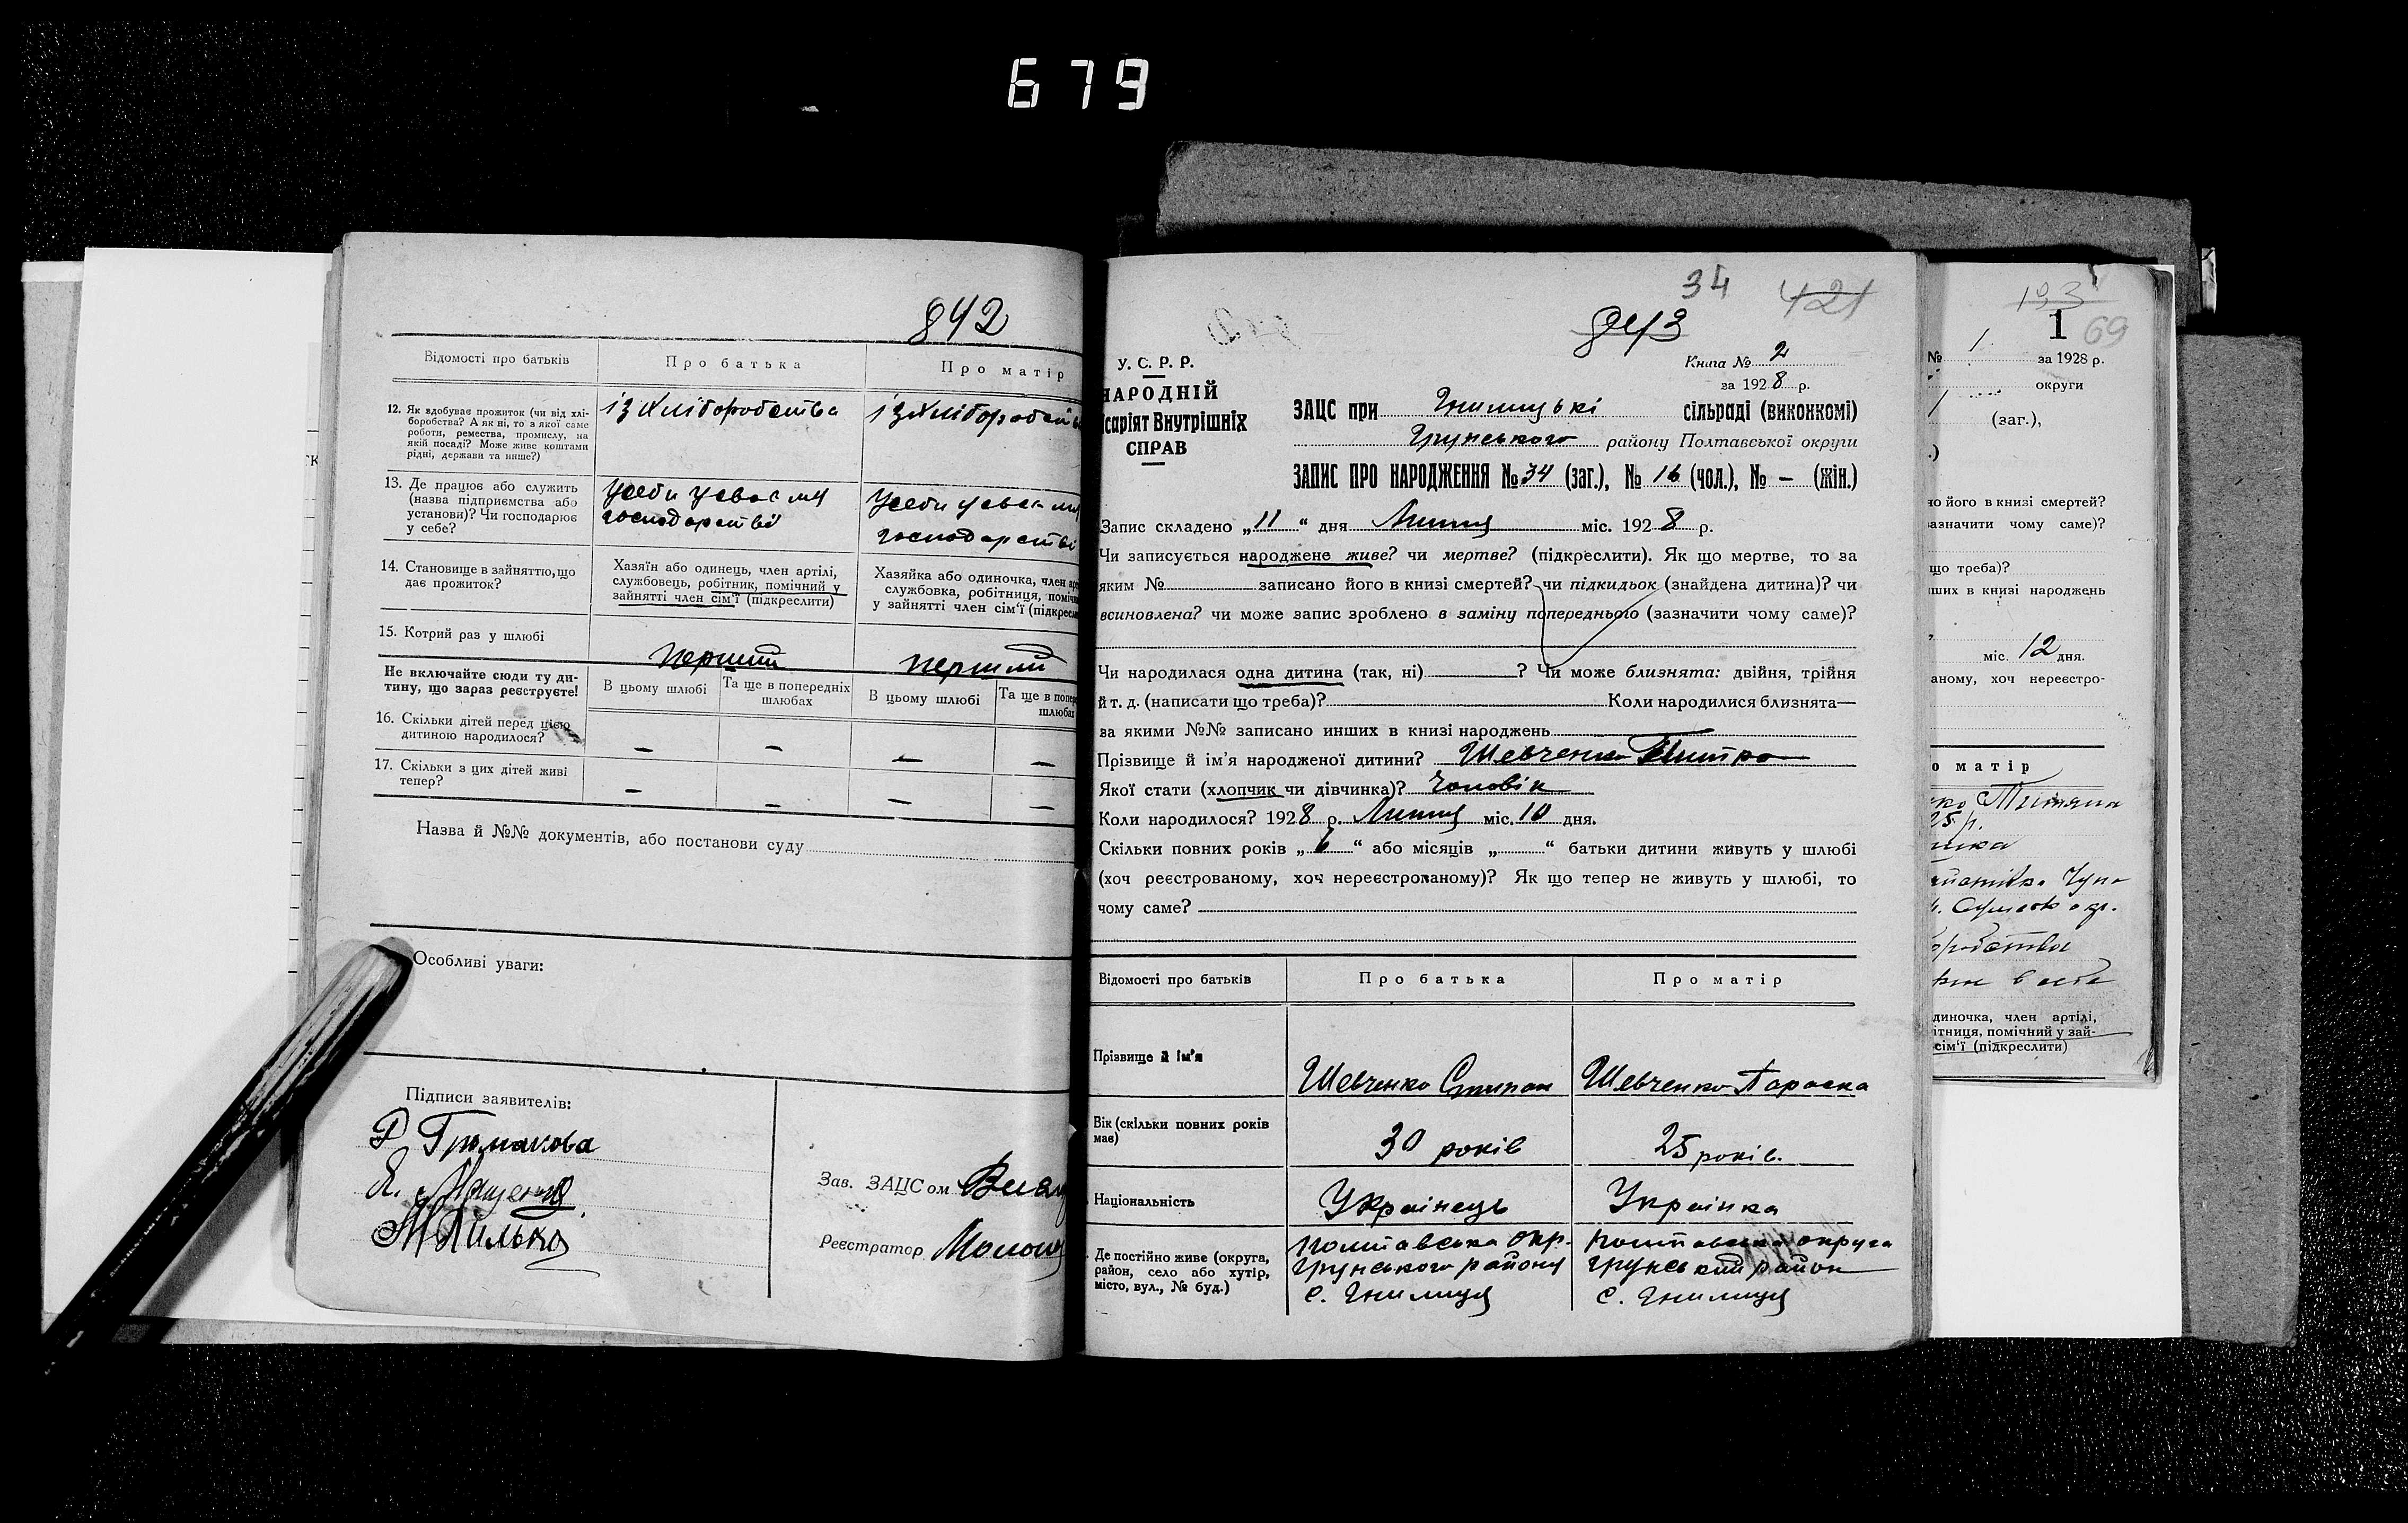 679
842
Відомості про батьків
Про батька
Про матір
12. Як здобуває прожиток (чи від хлі-
боробства? А як ні, то з якої саме
роботи, ремества, промислу, на
якій посаді? Може живе коштами
рідні, держави та инше?)
із хліборобства
із хлібороб
13. Де працює або служить
(назва підприємства або
установи)? Чи господарює
у себе?
господарстві
господарстві
14. Становище в зайняттю, що
дає прожиток?
Хазяїн або одинець, член артілі,
службовець, робітник, помічний у
зайнятті член сім'ї (підкреслити)
Хазяйка або одиночка, член арт
службовка, робітниця, поміч
у зайнятті член сім'ї (підкресл
15. Котрий раз у шлюбі
перший
перший
Не включайте сюди ту ди-
тину, що зараз реєструєте!
В цьому шлюбі
Та ще в попередніх
шлюбах
В цьому шлюбі
Та ще в попер
шлюбах
16. Скільки дітей перед цією
дитиною народилося?
— — — —
17. Скільки з цих дітей живі
тепер?
— — — —
Назва й №№ документів, або постанови суду
Особливі уваги:
Підписи заявителів:
Зав. ЗАЦСом
Реєстратор
34 421
843
У. С. Р. Р.
НАРОДНІЙ
ісаріят Внутрішніх
СПРАВ
Книга № 2
за 1928 р.
ЗАЦС при Гнилицькі сільраді (виконкомі)
Грунського району Полтавської округи
ЗАПИС ПРО НАРОДЖЕННЯ № 34 (заг.), № 16 (чол.), № — (жін.)
Запис складено „11" дня Липця міс. 1928 р.
Чи записується народжене живе? чи мертве? (підкреслити). Як що мертве, то за
яким № записано його в книзі смертей? чи підкидьок (знайдена дитина)? чи
всиновлена? чи може запис зроблено в заміну попереднього (зазначити чому саме)?
Чи народилася одна дитина (так, ні) ? Чи може близнята: двійня, трійня
й т. д. (написати що треба)? Коли народилися близнята—
за якими №№ записано инших в книзі народжень
Прізвище й ім'я народженої дитини? Шевченко Дмитро
Якої стати (хлопчик чи дівчинка)? Чоловік
Коли народилося? 1928 р. Липця міс. 10 дня.
Скільки повних років „6" або місяців „ " батьки дитини живуть у шлюбі
(хоч реєстрованому, хоч нереєстрованому)? Як що тепер не живуть у шлюбі, то
чому саме?
Відомості про батьків
Про батька
Про матір
Прізвище й ім'я
Шевченко Степан
Шевченко Параска
Вік (скільки повних років
має)
30 років
25 років.
Національність
Українець
Українка
Де постійно живе (округа,
район, село або хутір,
місто, вул., № буд.)
Полтавська окр.
Грунського району
с. Гнилиця
Полтавська округа
Грунський район
с. Гнилиця
193
1 69
№ 1. за 1928 р.
округи
(заг.),
но його в книзі смертей?
азначити чому саме)?
що треба)?
нших в книзі народжень
міс. 12 дня.
аному, хоч нереєстро-
о матір
Тетяна
25 р.
диночка, член артілі,
ітниця, помічний у зай-
сім'ї (підкреслити)